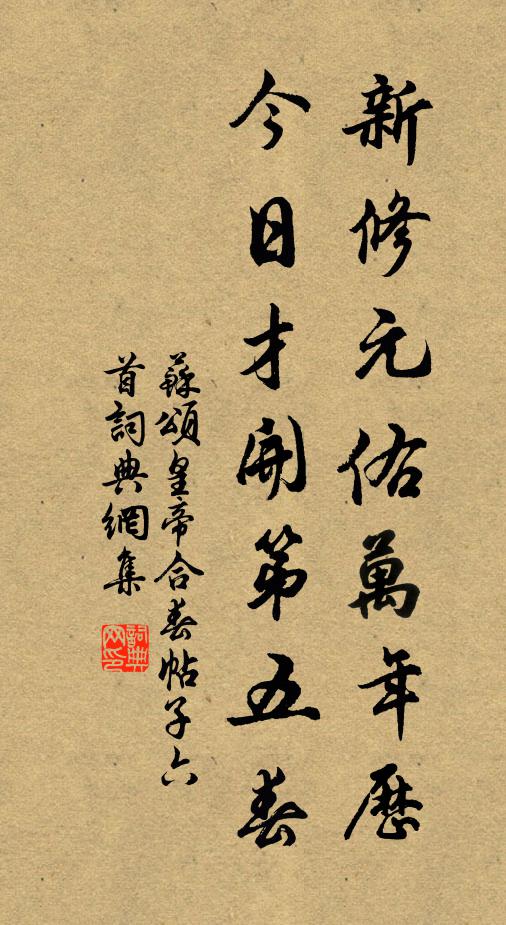 新修元佑萬年歷
今日才開第五春
蘇頌皇帝合春帖子六
首詞典網集
詞典网印